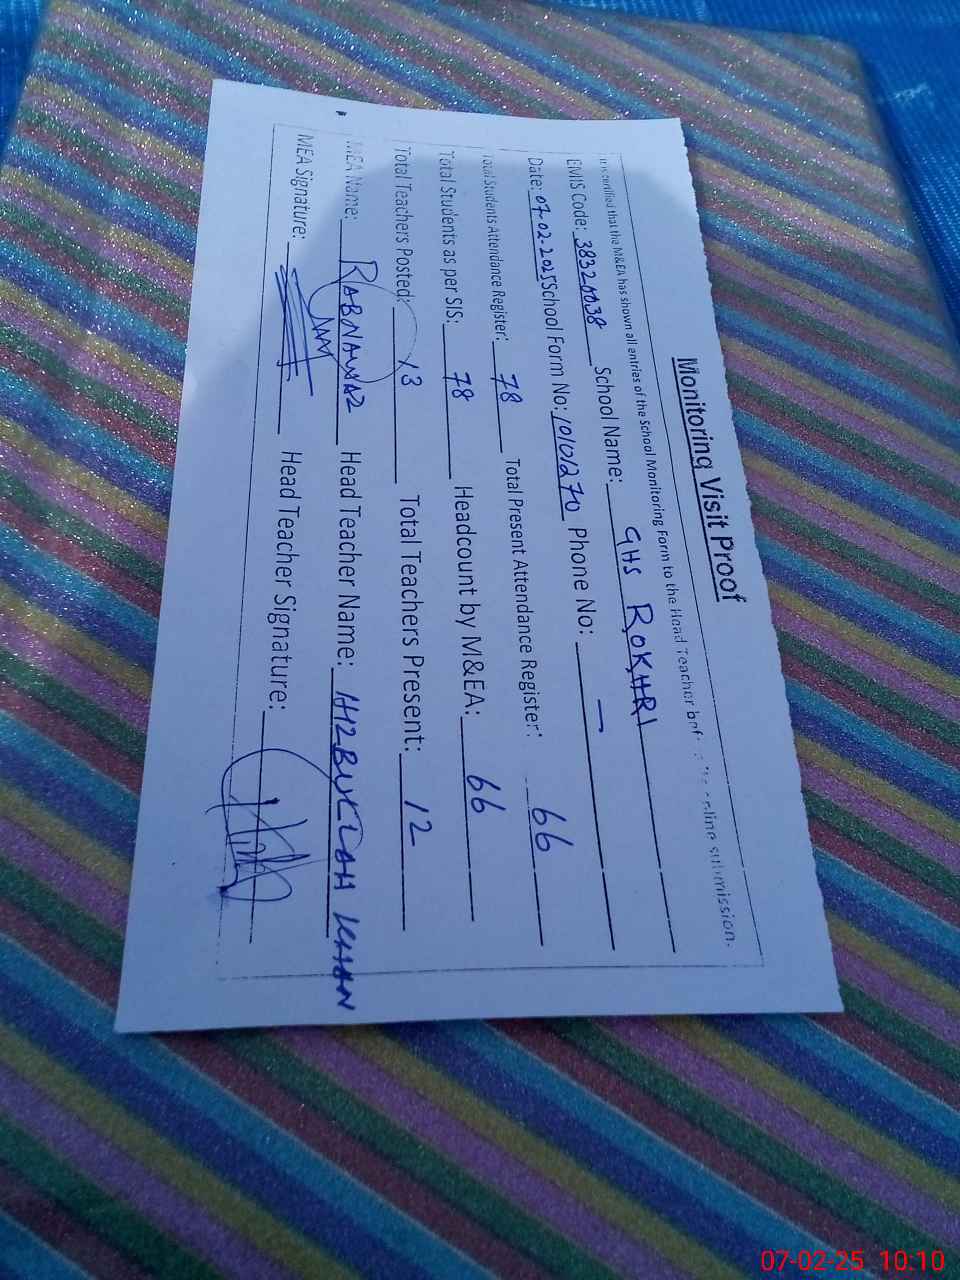 Monitoring Visit Proof
It is certified that the M&EA has shown all entries of the School Monitoring Form to the Head Teacher before the online submission.
EMIS Code: 38320038 School Name: GHS ROKHRI
Date: 07-02-2025 School Form No: 10101270 Phone No: —
Total Students Attendance Register: 78 Total Present Attendance Register: 66
Total Students as per SIS: 78 Headcount by M&EA: 66
Total Teachers Posted: 13 Total Teachers Present: 12
MEA Name: RABNAWAZ Head Teacher Name: KHAN
MEA Signature: Head Teacher Signature:
07-02-25 10:10